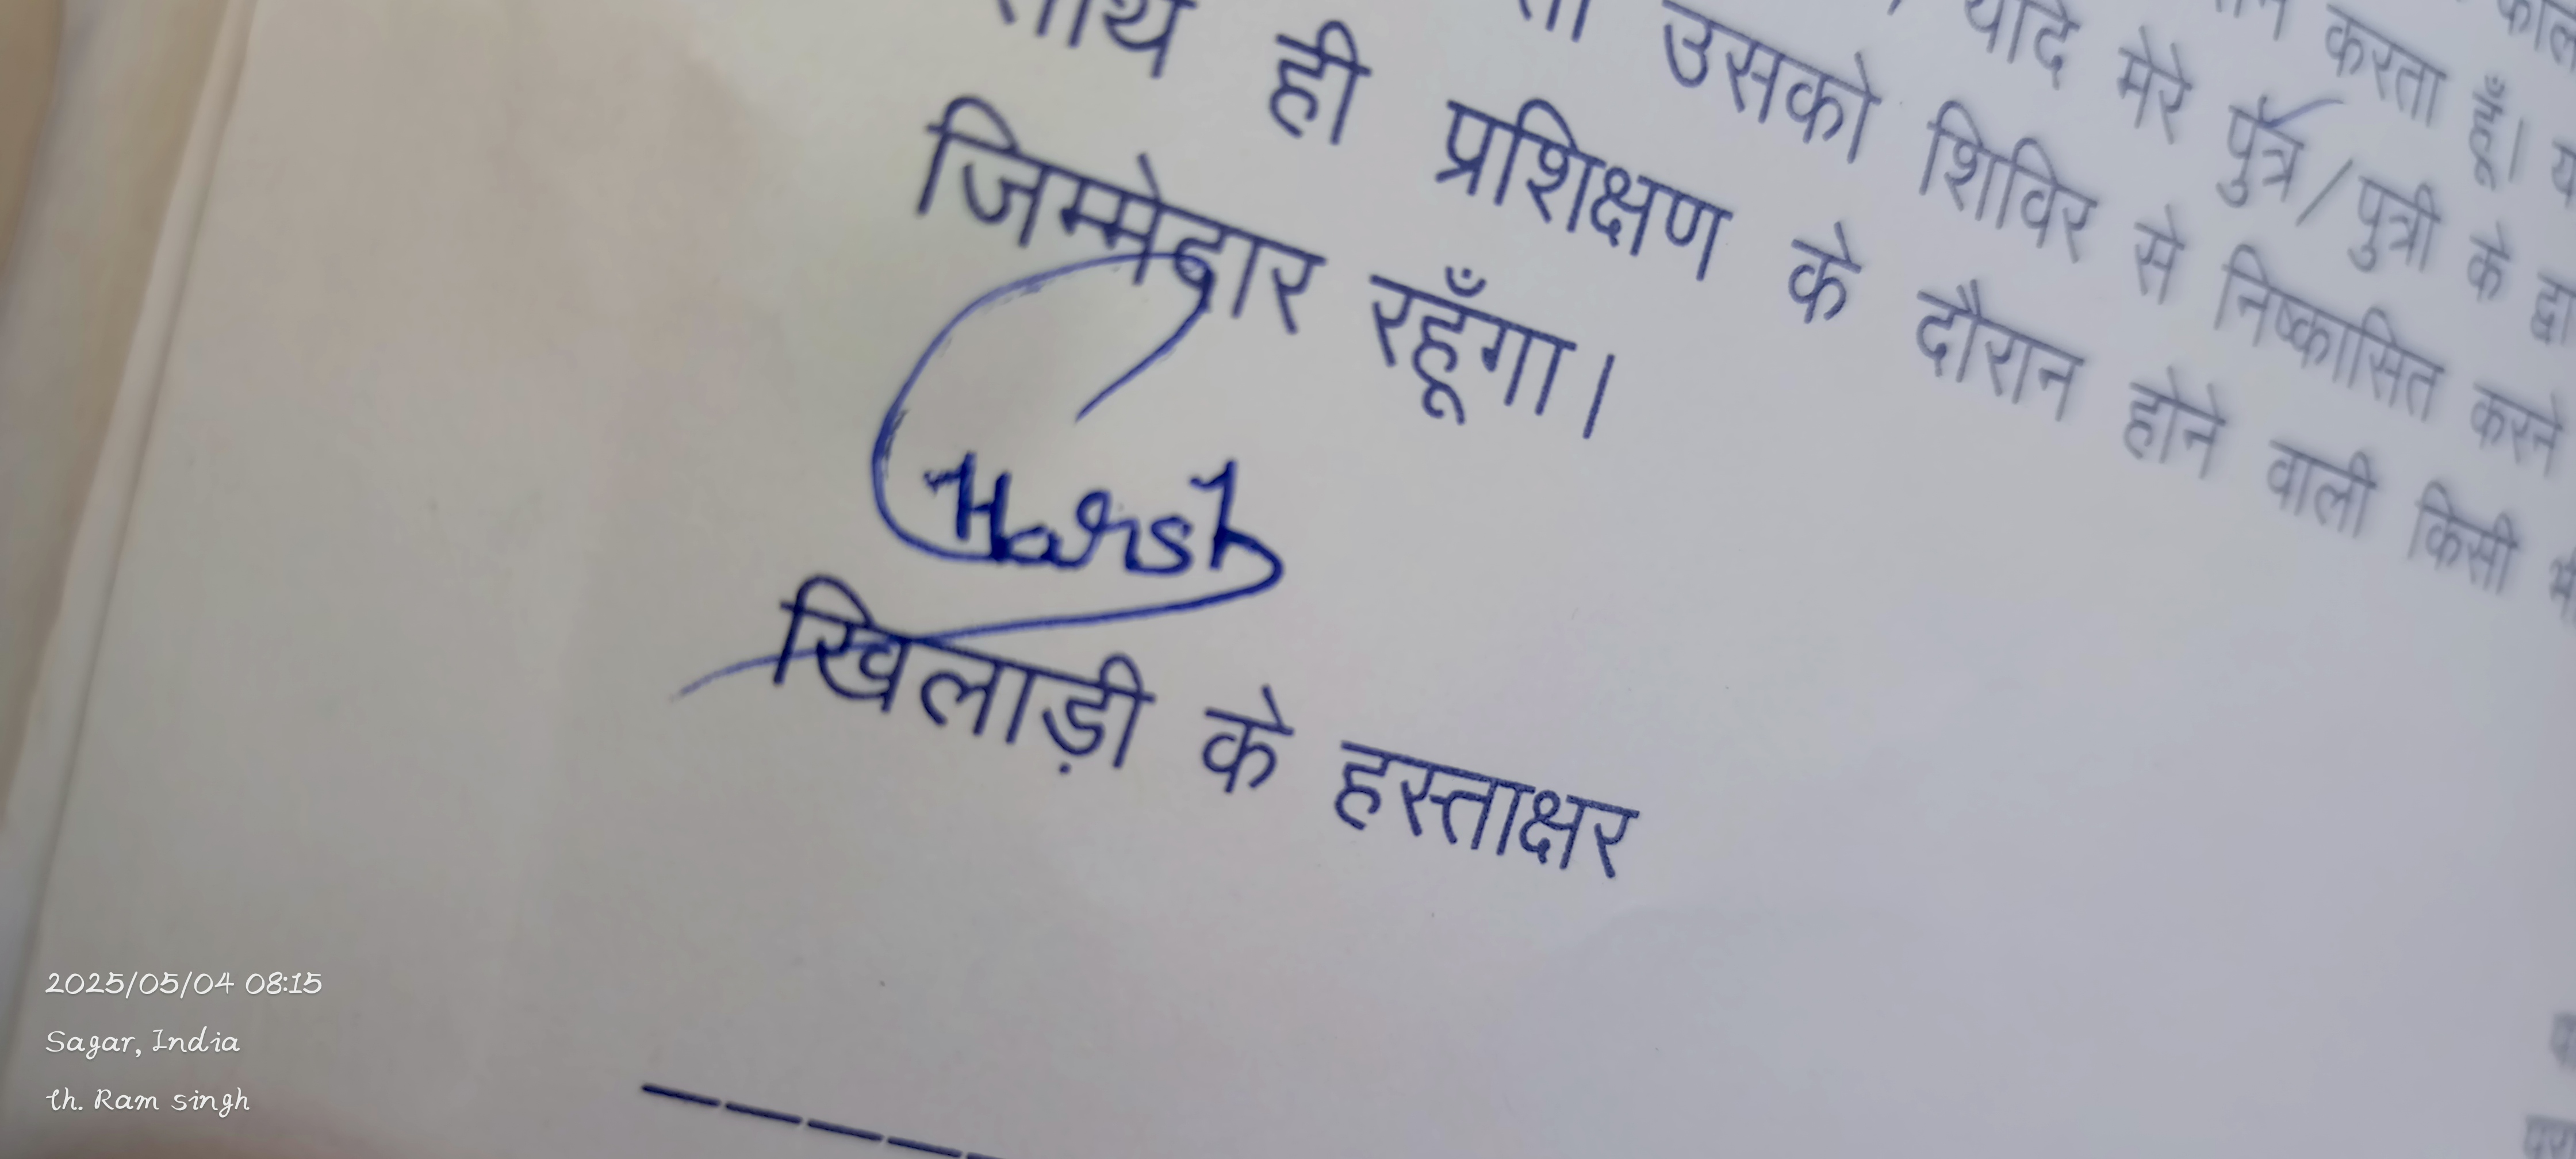 करता हूँ।
यदि मेरे पुत्र/पुत्री के
उसको शिविर से निष्कासित करने
साथ ही प्रशिक्षण के दौरान होने वाली किसी
जिम्मेदार रहूँगा।
Harsh
खिलाड़ी के हस्ताक्षर
2025/05/04 08:15
Sagar, India
th. Ram singh